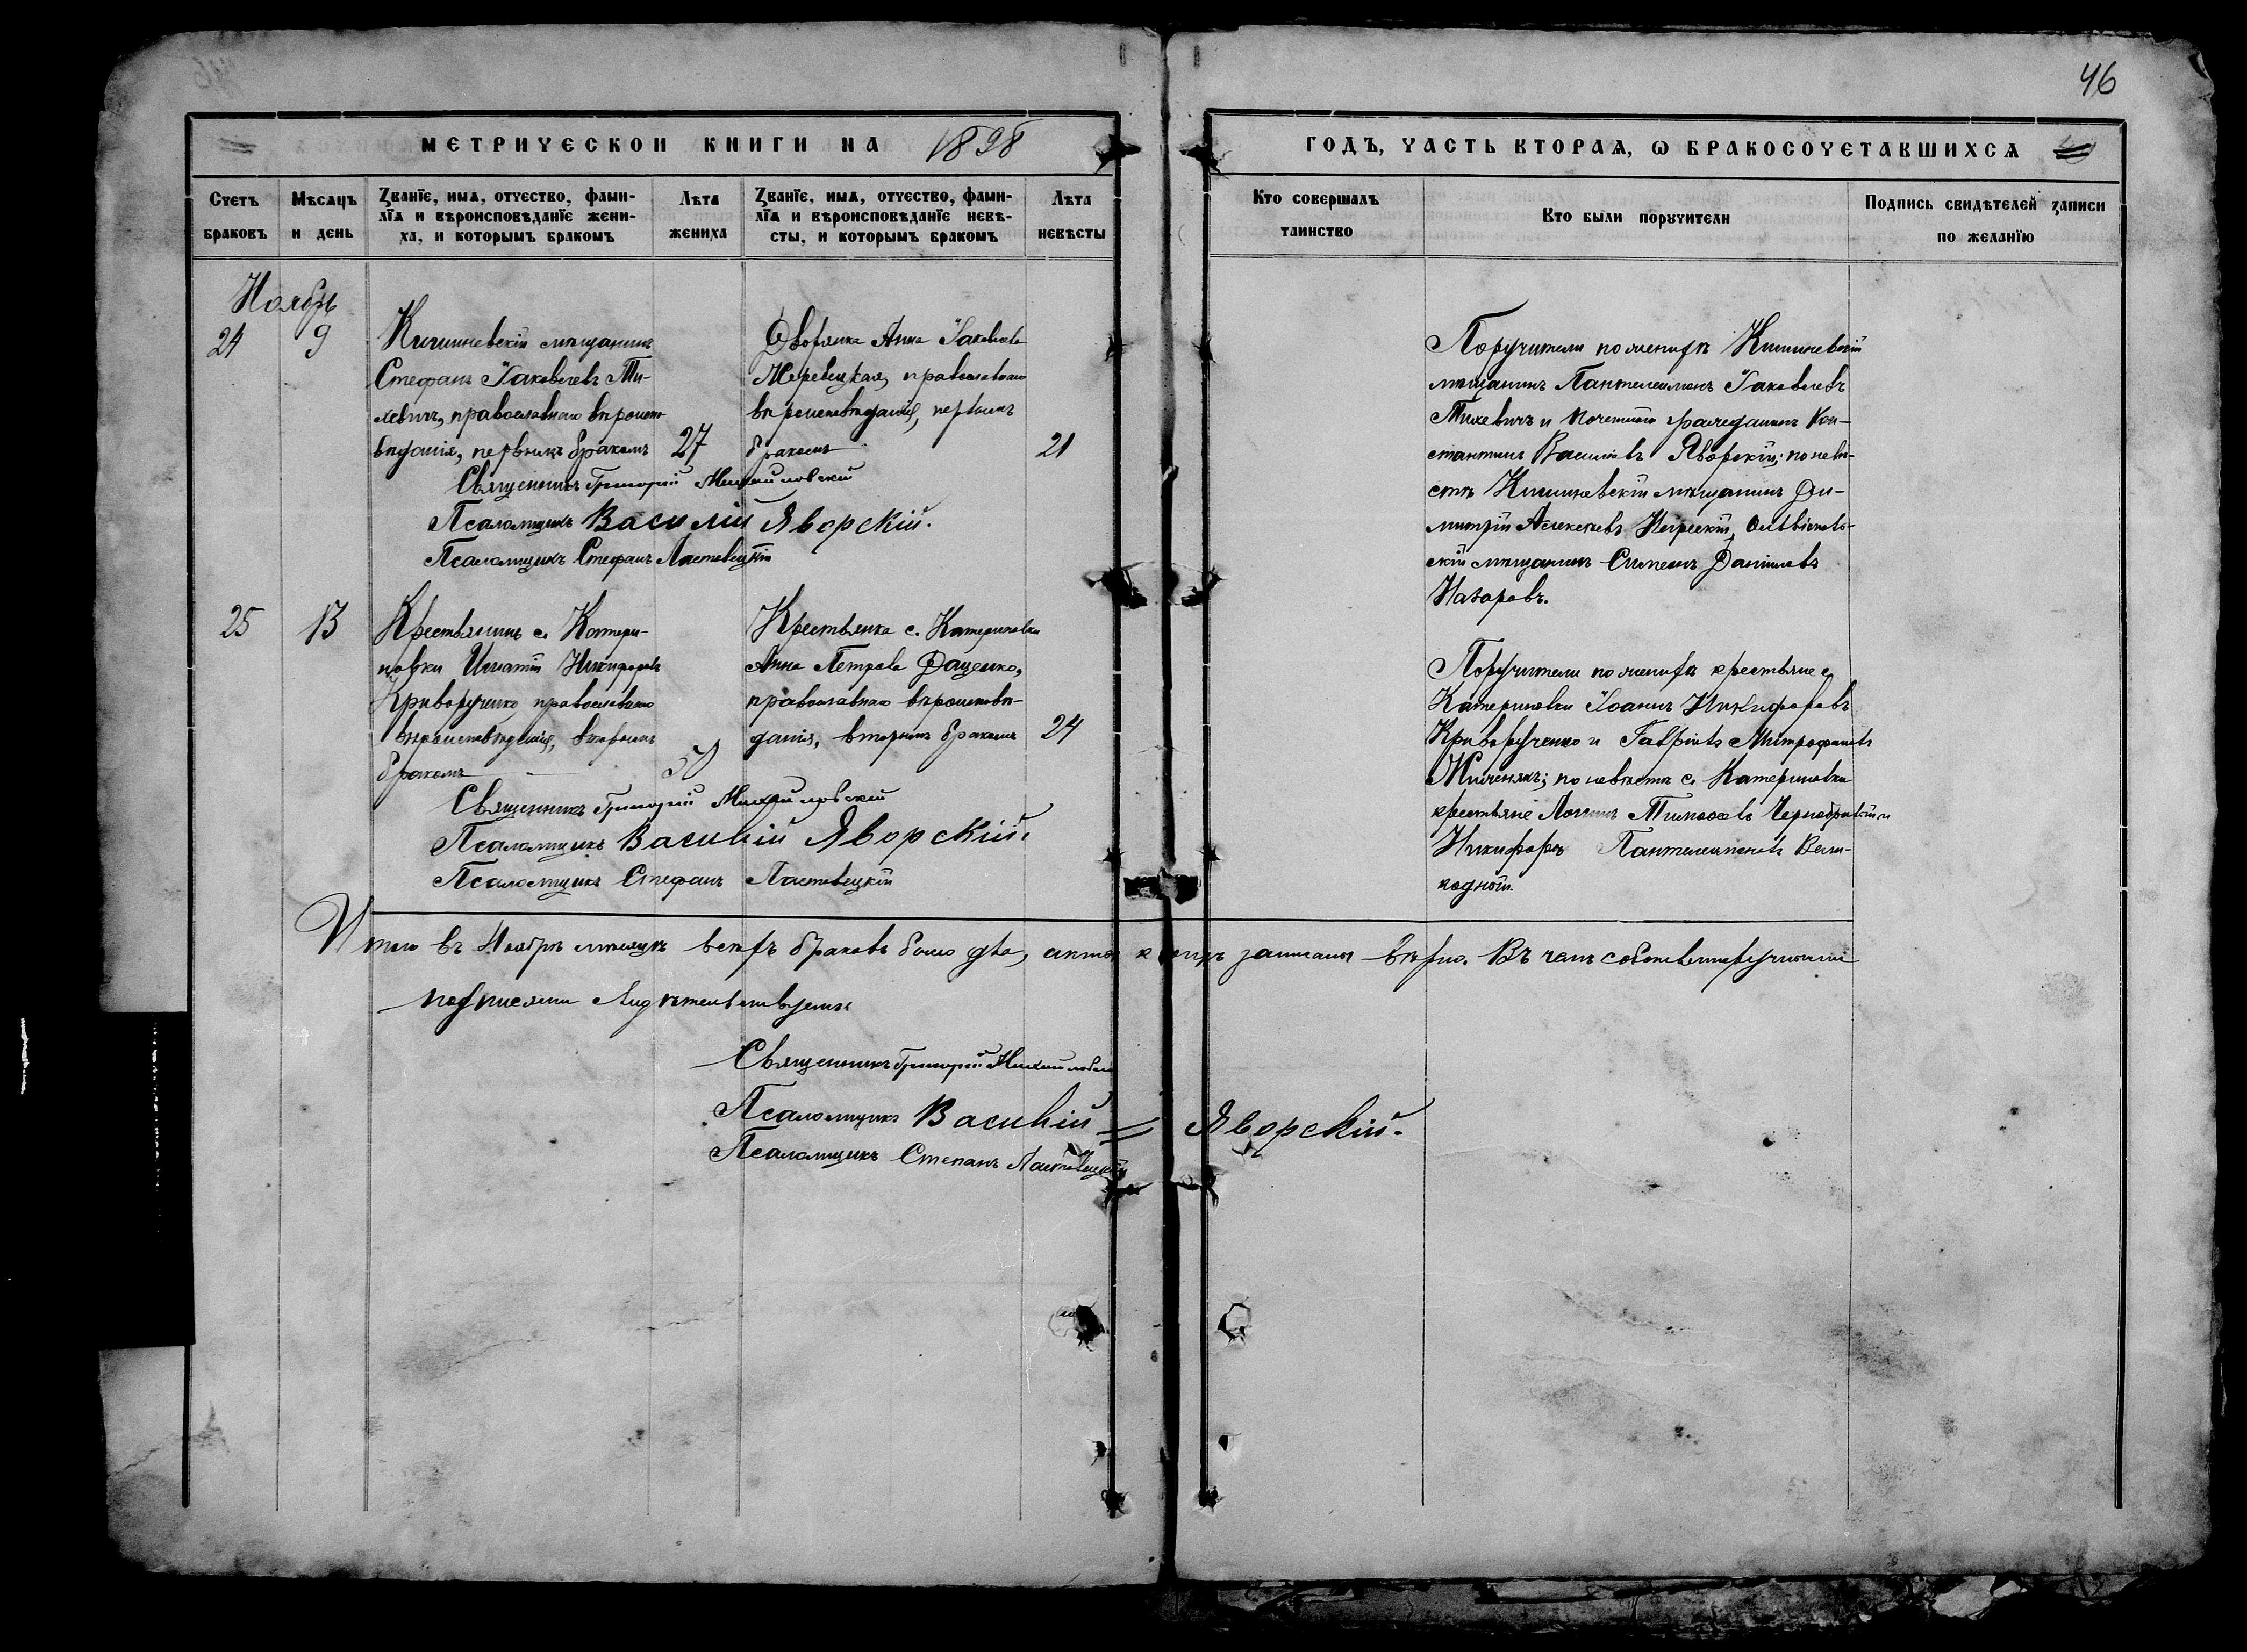 46
МЕТРИЧЕСКОЙ КНИГИ НА 1898
ГОДЪ, ЧАСТЬ ВТОРАѦ, Ѡ БРАКОСОЧЕТАВШИХСѦ
Счетъ браковъ
Мѣсѧцъ и день
Званїе, имѧ, отчество, фами-
лїѧ и вѣроисповѣданїе жени-
ха, и которымъ бракомъ
Лѣта жениха
Званїе, имѧ, отчество, фами-
лїѧ и вѣроисповѣданїе невѣ-
сты, и которымъ бракомъ
Лѣта невѣсты
Кто совершалъ
таинство
Кто были поручители
Подпись свидѣтелей записи
по желанїю
Ноябрь
24
9
Кишиневскій мѣщанинъ
Стефанъ Іаковлевъ Ти-
хевичъ, православнаго вѣроиспо-
вѣданія, первымъ бракомъ
27
Дворянка Анна Іаковлева
Меревецкая, православнаго
вѣроисповѣданія, первымъ
бракомъ
21
Священникъ Григорій Михайловскій
Псаломщикъ Василій Яворскій.
Псаломщикъ Стефанъ Ластовецкій
Поручители по женихѣ Кишиневскій
мѣщанинъ Пантелеимонъ Іаковлевъ
Тихевичъ и Почетный гражданинъ Кон-
стантинъ Васильевъ Яворскій; по невѣ-
стѣ Кишиневскій мѣщанинъ Ди-
митрій Алексѣевъ
скій мѣщанинъ Симеонъ Даніиловъ
Назаровъ.
25
13
Крестьянинъ с. Катери-
новки Игнатій Никифоровъ
Криворученко православнаго
вѣроисповѣданія, вторымъ
бракомъ
Крестьянка с. Катериновки
Анна Петрова Даценко,
православнаго вѣроисповѣ-
данія, вторымъ бракомъ
24
Священникъ Григорій Михайловскій
Псаломщикъ Василій Яворскій.
Псаломщикъ Стефанъ Ластовецкій
Поручители по женихѣ крестьяне с.
Катериновки Іоаннъ Никифоровъ
Криворученко и Гавріилъ Митрофановъ
по невѣстѣ с. Катериновки
крестьяне Логинъ Тимоѳеевъ Чернобривый и
Никифоръ Пантелеимоновъ Вели-
кодный.
Итого въ Ноябрѣ мѣсяцѣ всѣхъ браковъ было два, акты коихъ записаны вѣрно. Въ чемъ собственноручными
подписями свидѣтельствуемъ
Священникъ Григорій Михайловскій
Псаломщикъ Василій = Яворскій.
Псаломщикъ Степанъ Ластовецкій